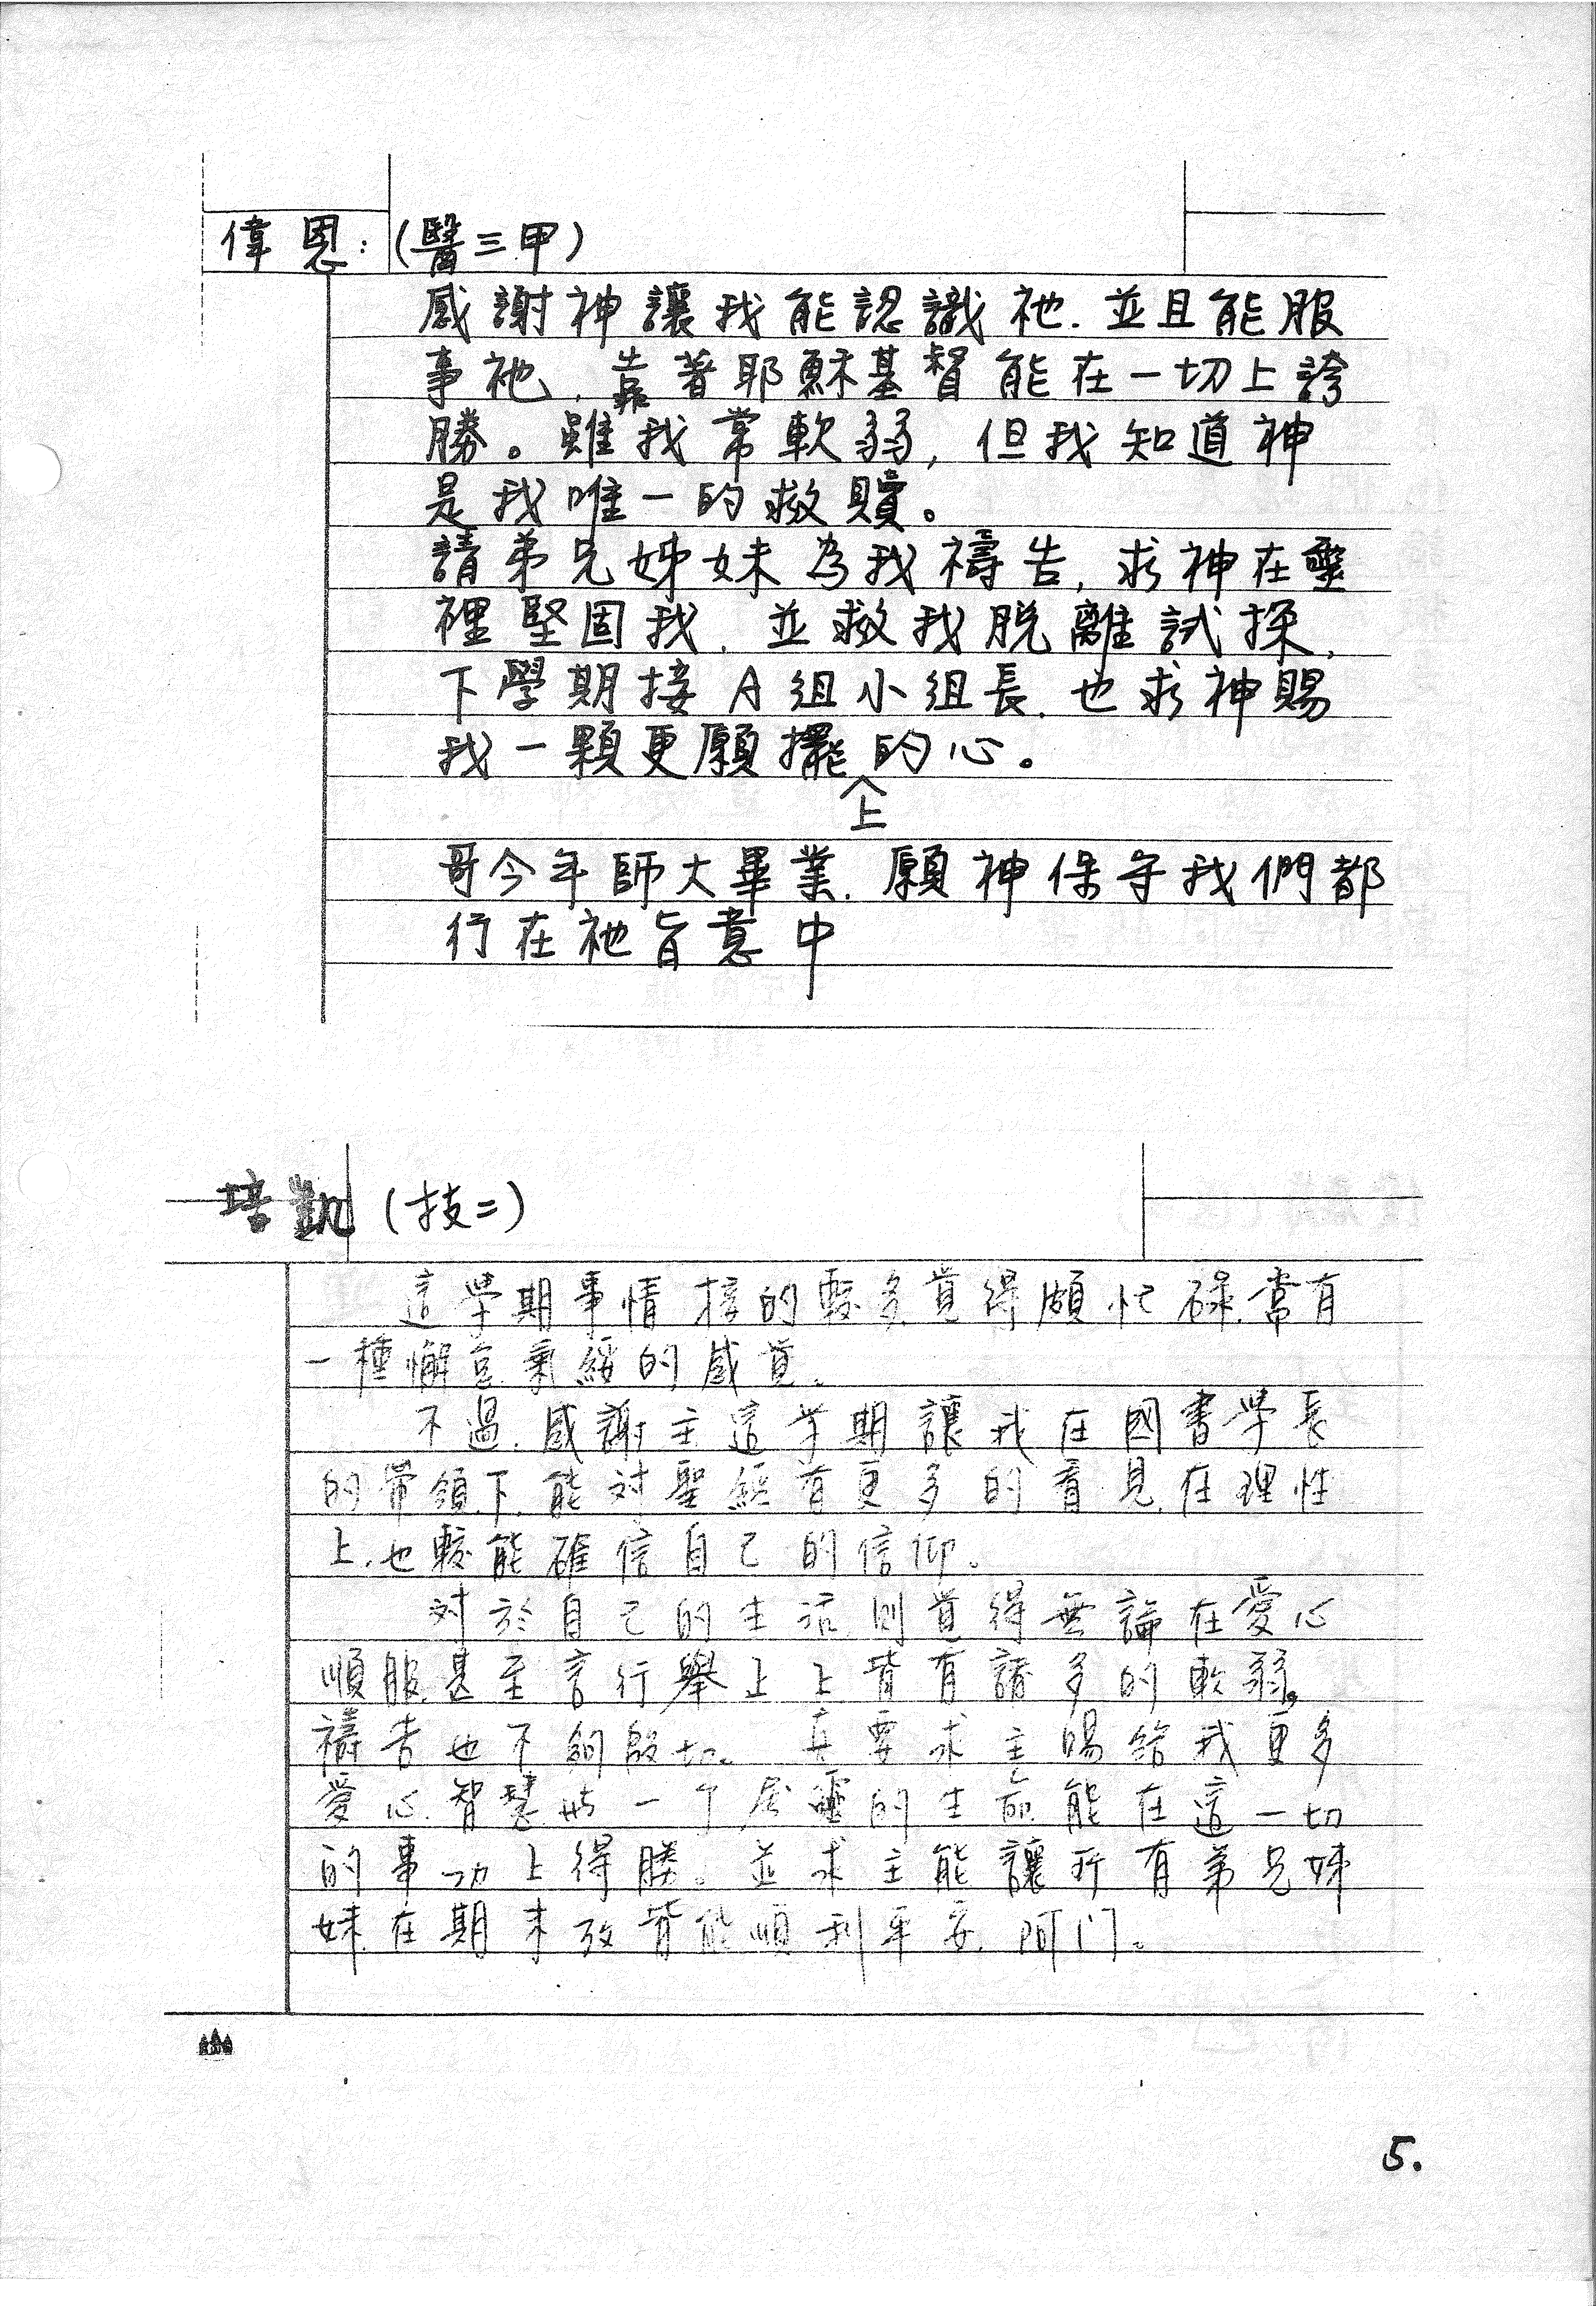 偉恩:(醫三甲)
感謝神讓我能認識祂.並且能服
事祂.靠著耶穌基督能在一切上誇
勝。雖我常軟弱,但我知道神
是我唯一的救贖。
請弟兄姊妹為我禱告,求神在靈
裡堅固我.並救我脫離試探,
下學期接A組小組長.也求神賜
我一顆更願擺上的心。
哥今年師大畢業.願神保守我們都
行在祂旨意中
培凱(技二)
這學期事情接的較多覺得頗忙碌.常有
一種懈怠氣餒的感覚。
不過.感謝主這学期讓我在國書学長
的带領下.能対聖經有更多的看見.在理性
上.也較能確信自己的信仰。
対於自己的生活則覚得無論在愛心
順服甚至言行舉止上皆有諸多的軟弱。
禱告也不夠殷切。真要求主賜給我更多
愛心.智慧.與一个屬靈的生命能在這一切
的事功上得勝。並求主能讓所有弟兄姊
妹在期末攷皆能順利平安.阿们。
5.